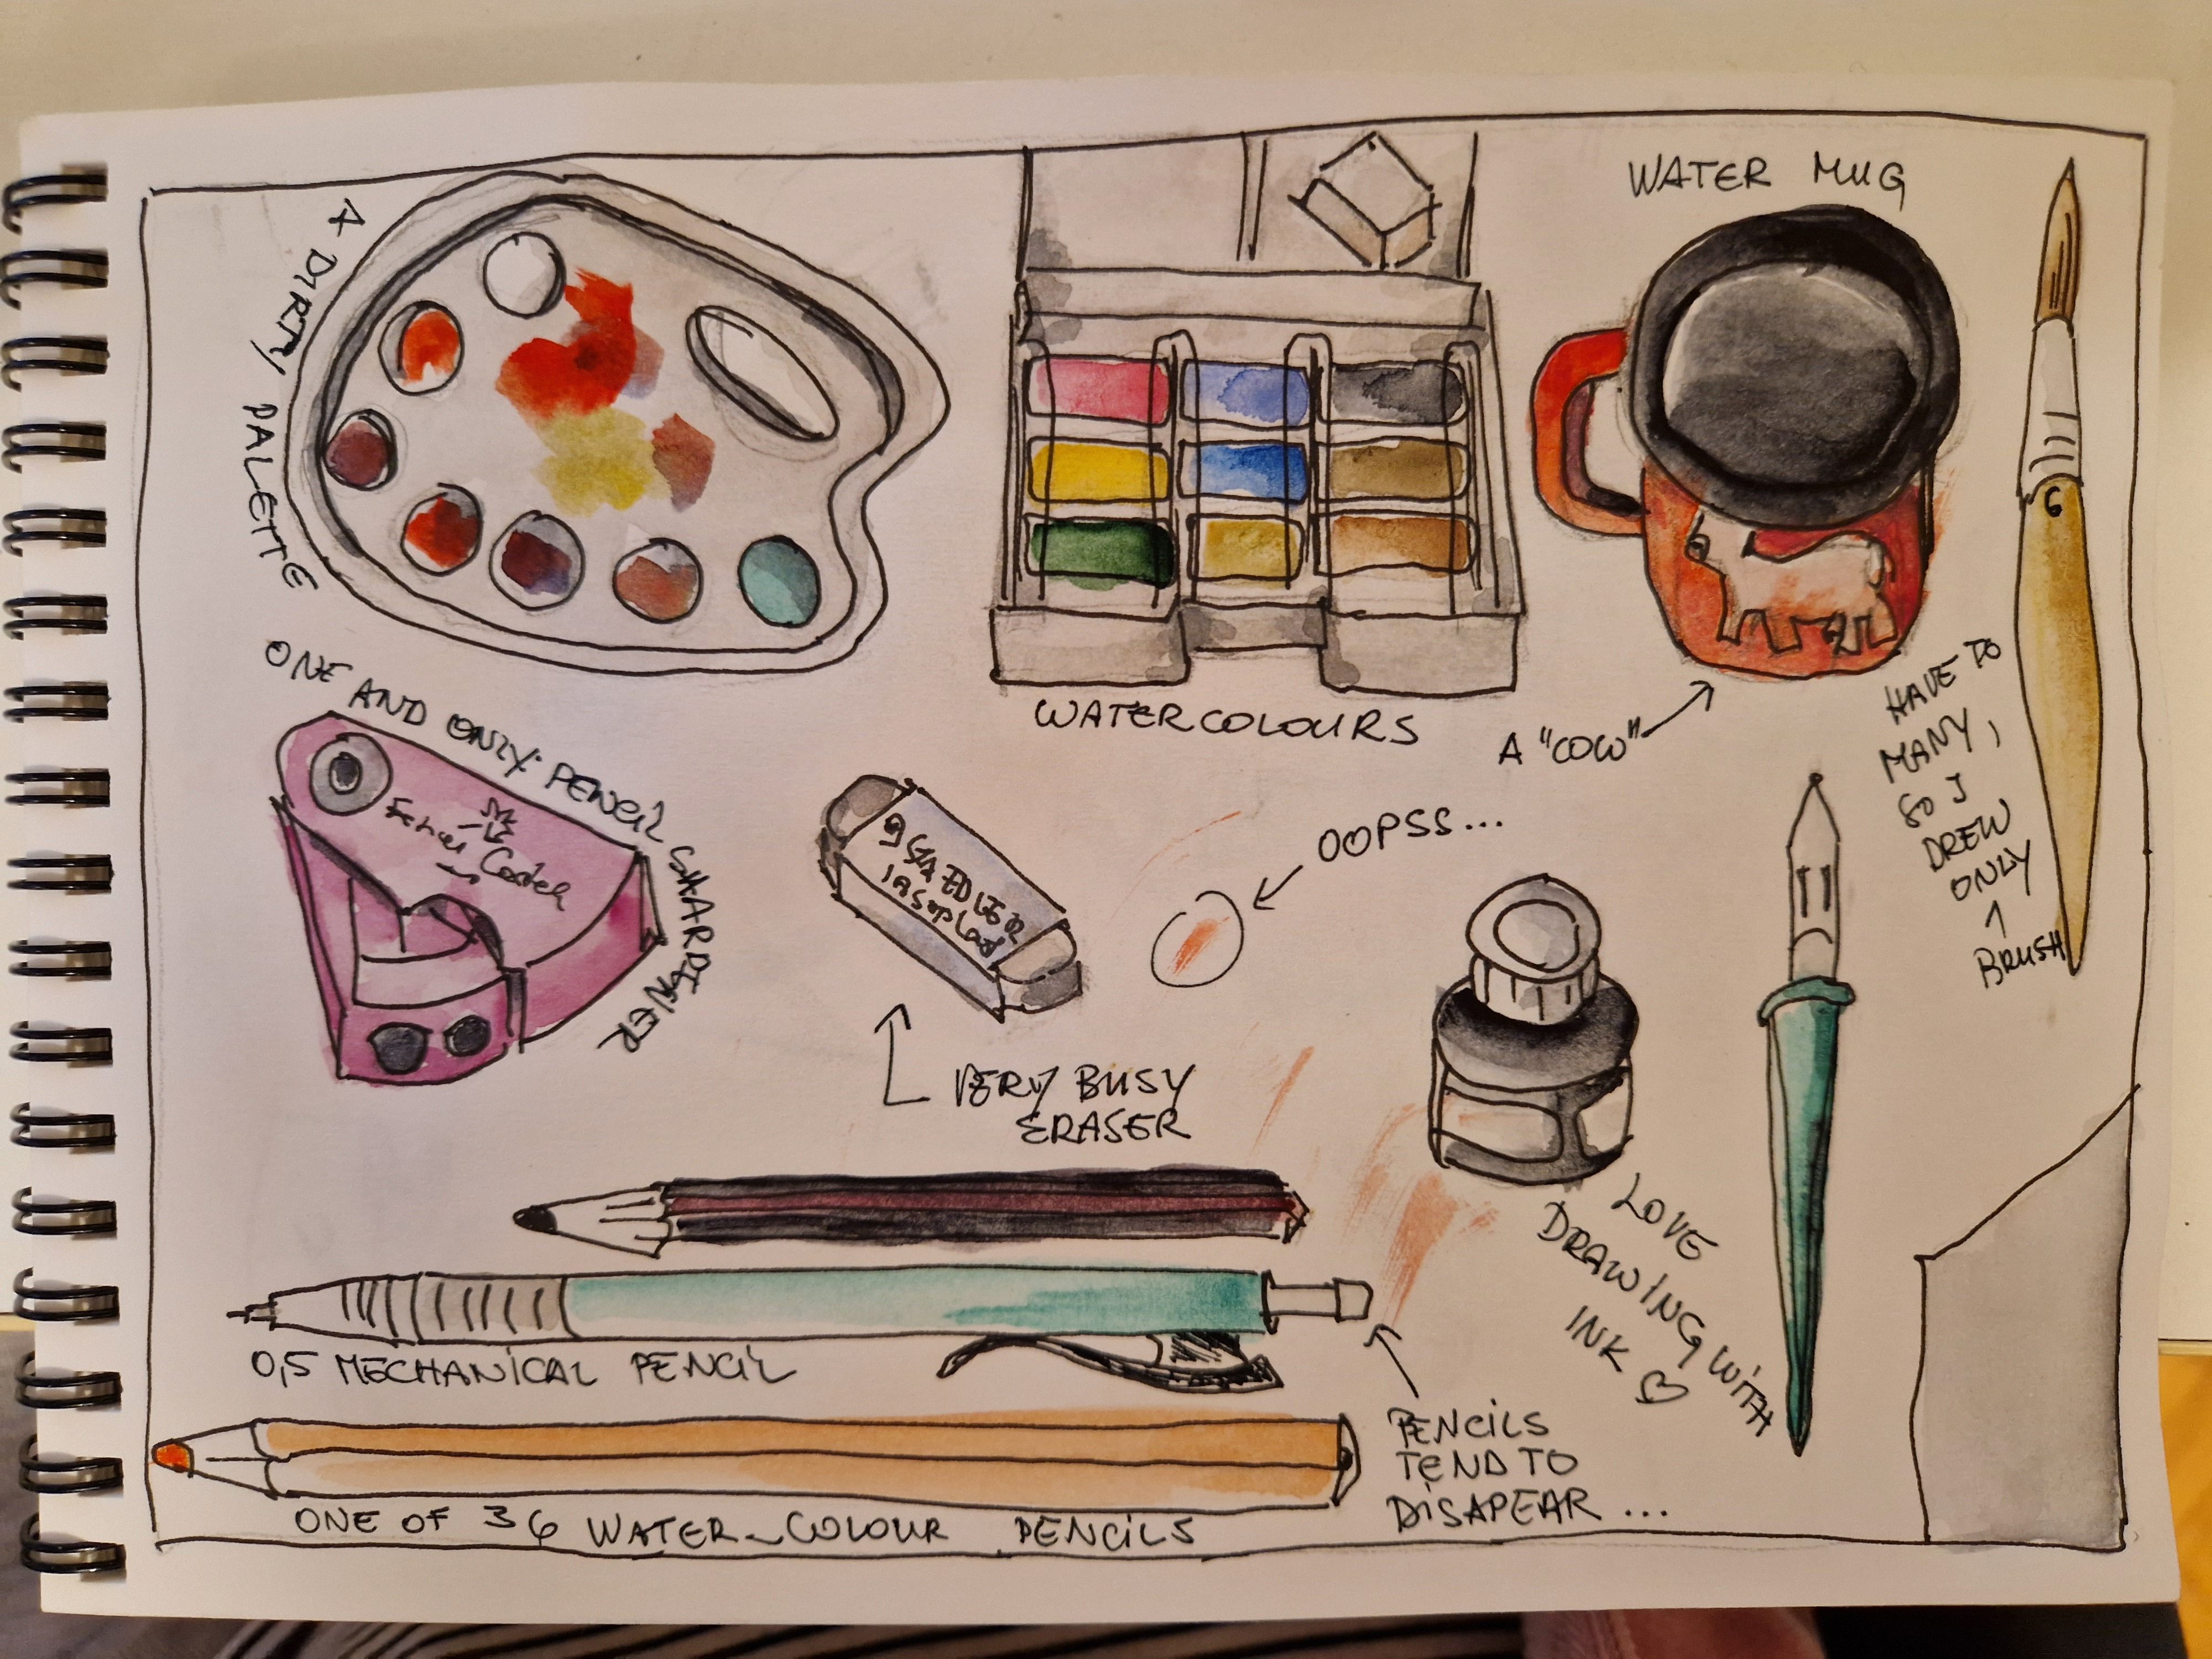 WATER MUG
A DIRTY PALETTE
6
ONE AND ONLY PENCIL SHARPENER
WATERCOLOURS
A "COW"
HAVE TO
MANY,
SO I
DREW
ONLY
1
BRUSH
Faber Castell
STAEDTLER
OOPSS...
VERY BUSY
ERASER
LOVE
DRAWING WITH
INK
0,5 MECHANICAL PENCIL
PENCILS
TEND TO
DISAPEAR ...
ONE OF 36 WATER-COLOUR PENCILS